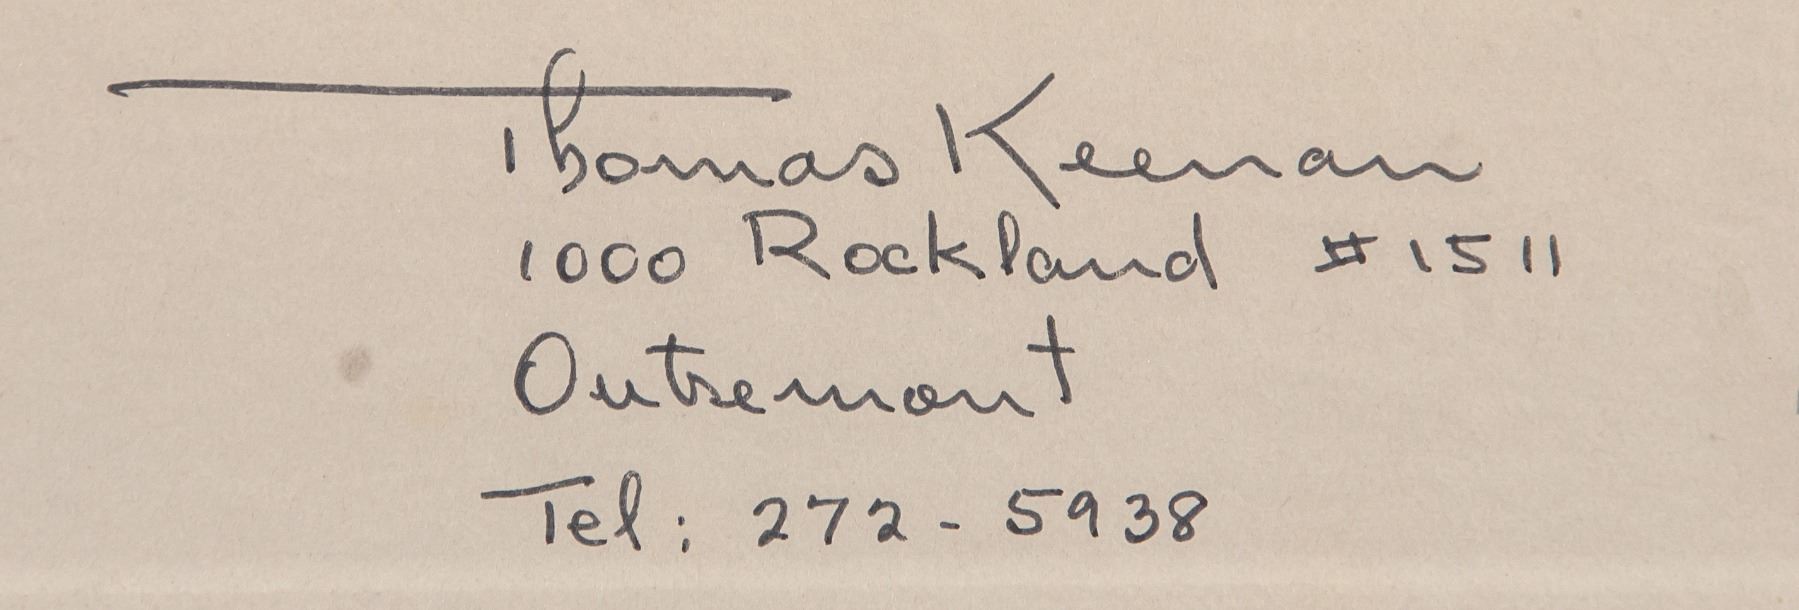 Thomas Keenan
1000 Rockland #1511
Outremont
Tel: 272-5938